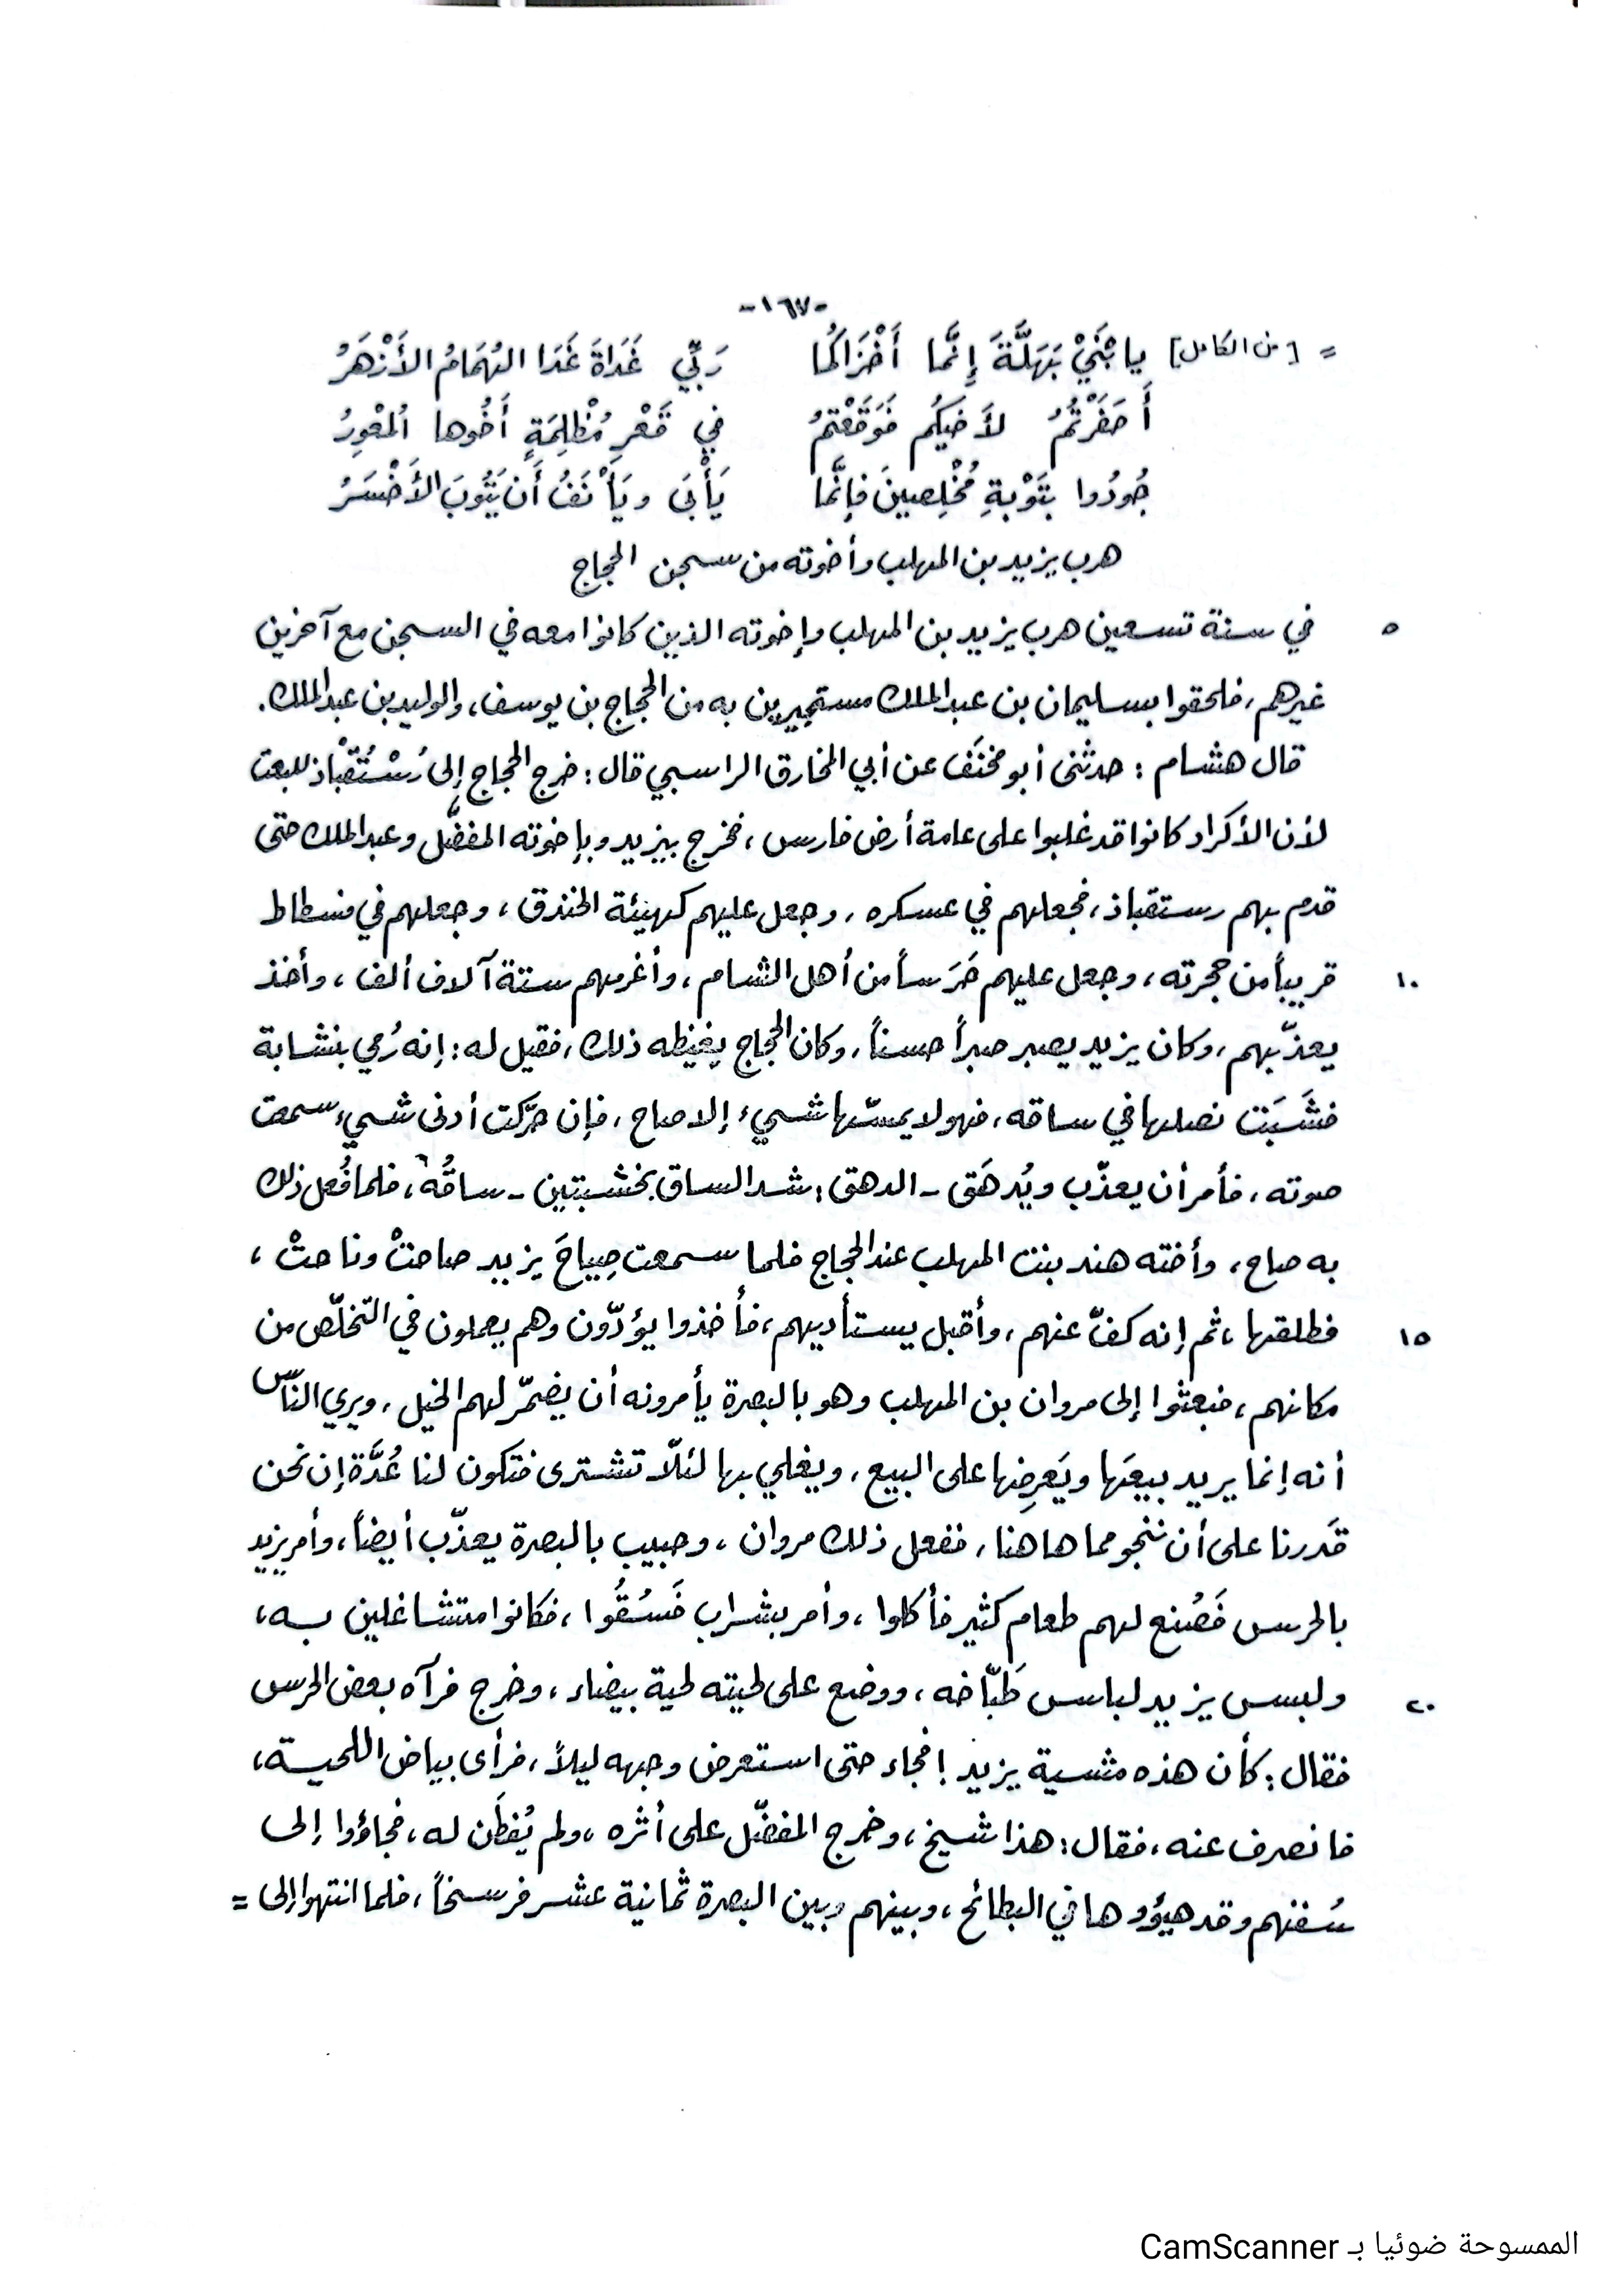 -١٦٧-
= [من الكامل] يا بْنَيْ بَهَلَّةَ إِنَّما أَخْزَاكُما رَبِّي غَدَاةَ غَدَا الهُمَامُ الأَزْهَرُ
أَحَفَرْتُمُ لأَخيكُم فَوَقَعْتمُ في قَعْرِ مُظْلِمَةٍ أَخُوها المُعْوِرُ
جُودُوا بتَوْبةِ مُخْلِصِينَ فإنَّما يَأْبَى ويَأْنَفُ أَن يَتُوبَ الأَخْسَرُ
هرب يزيد بن المهلب وأخوته من سجن الحجاج
٥ في سنة تسعين هرب يزيد بن المهلب وإخوته الذين كانوا معه في السجن مع آخرين
غيرهم، فلحقوا بسليمان بن عبدالملك مستجيرين به من الحجاج بن يوسف، والوليد بن عبدالملك.
قال هشام : حدثني أبو مخنَف عن أبي المخارق الراسبي قال : خرج الحجاج إلى رُسْتُقْباذ للبعث
لأن الأكراد كانوا قد غلبوا على عامة أرض فارس ، فخرج بيزيد وبإخوته المفضَّل وعبدالملك حتى
قدم بهم رستقباذ، فجعلهم في عسكره، وجعل عليهم كهيئة الخندق ، وجعلهم في فسطاط
١٠ قريباً من حجرته ، وجعل عليهم حَرَساً من أهل الشام ، وأغرمهم ستة آلاف ألف ، وأخذ
يعذّبهم، وكان يزيد يصبر صبراً حسناً، وكان الحجاج يغيظه ذلك، فقيل له : إنه رُمي بنشابة
فشَبَت نصلها في ساقه، فهو لا يمسّها شيء إلا صاح، فإن حرّكت أدنى شيء سمعت
صوته ، فأمر أن يعذّب ويُدهَق - الدهق : شد الساق بخشبتين - ساقُه، فلما فُعل ذلك
به صاح ، وأخته هند بنت المهلب عند الحجاج فلما سمعت صِياحَ يزيد صاحتْ وناحتْ ،
١٥ فطلقها ، ثم إنه كفّ عنهم، وأقبل يستأديهم ، فأخذوا يؤدّون وهم يعملون في التخلّص من
مكانهم ، فبعثوا إلى مروان بن المهلب وهو بالبصرة يأمرونه أن يضمّر لهم الخيل، ويري النّاس
أنه إنما يريد بيعَها ويَعرِضها على البيع ، ويغلي بها لئلّا تشترى فتكون لنا عُدَّة إن نحن
قَدرنا على أن ننجو مما هاهنا، ففعل ذلك مروان ، وحبيب بالبصرة يعذّب أيضاً، وأمر يزيد
بالحرس فَصُنع لهم طعام كثير فأكلوا ، وأمر بشراب فَسُقُوا ، فكانوا متشاغلين به،
٢٠ ولبس يزيد لباس طَبّاخه ، ووضع على لحيته لحية بيضاء ، وخرج فرآه بعض الحرس
فقال : كأن هذه مشية يزيد ! فجاء حتى استعرض وجهه ليلاً ، فرأى بياض اللحية،
فانصرف عنه، فقال: هذا شيخ ، وخرج المفضّل على أثره ، ولم يُفطَن له ، فجاؤوا إلى
سُفنهم وقد هيؤوها في البطائح ، وبينهم وبين البصرة ثمانية عشر فرسخاً ، فلما انتهوا إلى =
الممسوحة ضوئيا بـ CamScanner